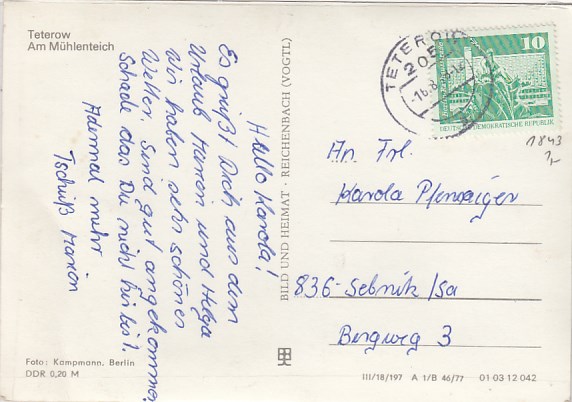 Teterow
Am Mühlenteich
Hallo Karola!
Es grüßt Dich, aus dem
Urlaub Marion und Helga
Wir haben sehr schönes
Wetter. Sind gut angekommen.
Schade das Du nicht hir bist.
mehr
Tschüß Marion
Foto: Kampmann, Berlin
DDR 0,20 M
BILD UND HEIMAT · REICHENBACH (VOGTL)
TETEROW
205
10
DEUTSCHE DEMOKRATISCHE REPUBLIK
1843
An Frl.
Karola
836-Sebnitz/Sa
Bergweg 3
III/18/197 A 1/B 46/77 01 03 12 042